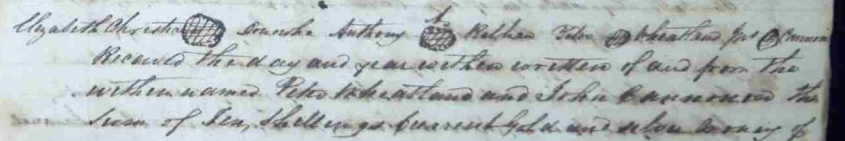 Elizabeth Christia Anthony Bekker Peter Wheatland Jno Cannon
Received the day and year within written of and from the
within named Peter Wheatland and John Cannon the
Sum of ten Shillings Current Gold and Silver Money of